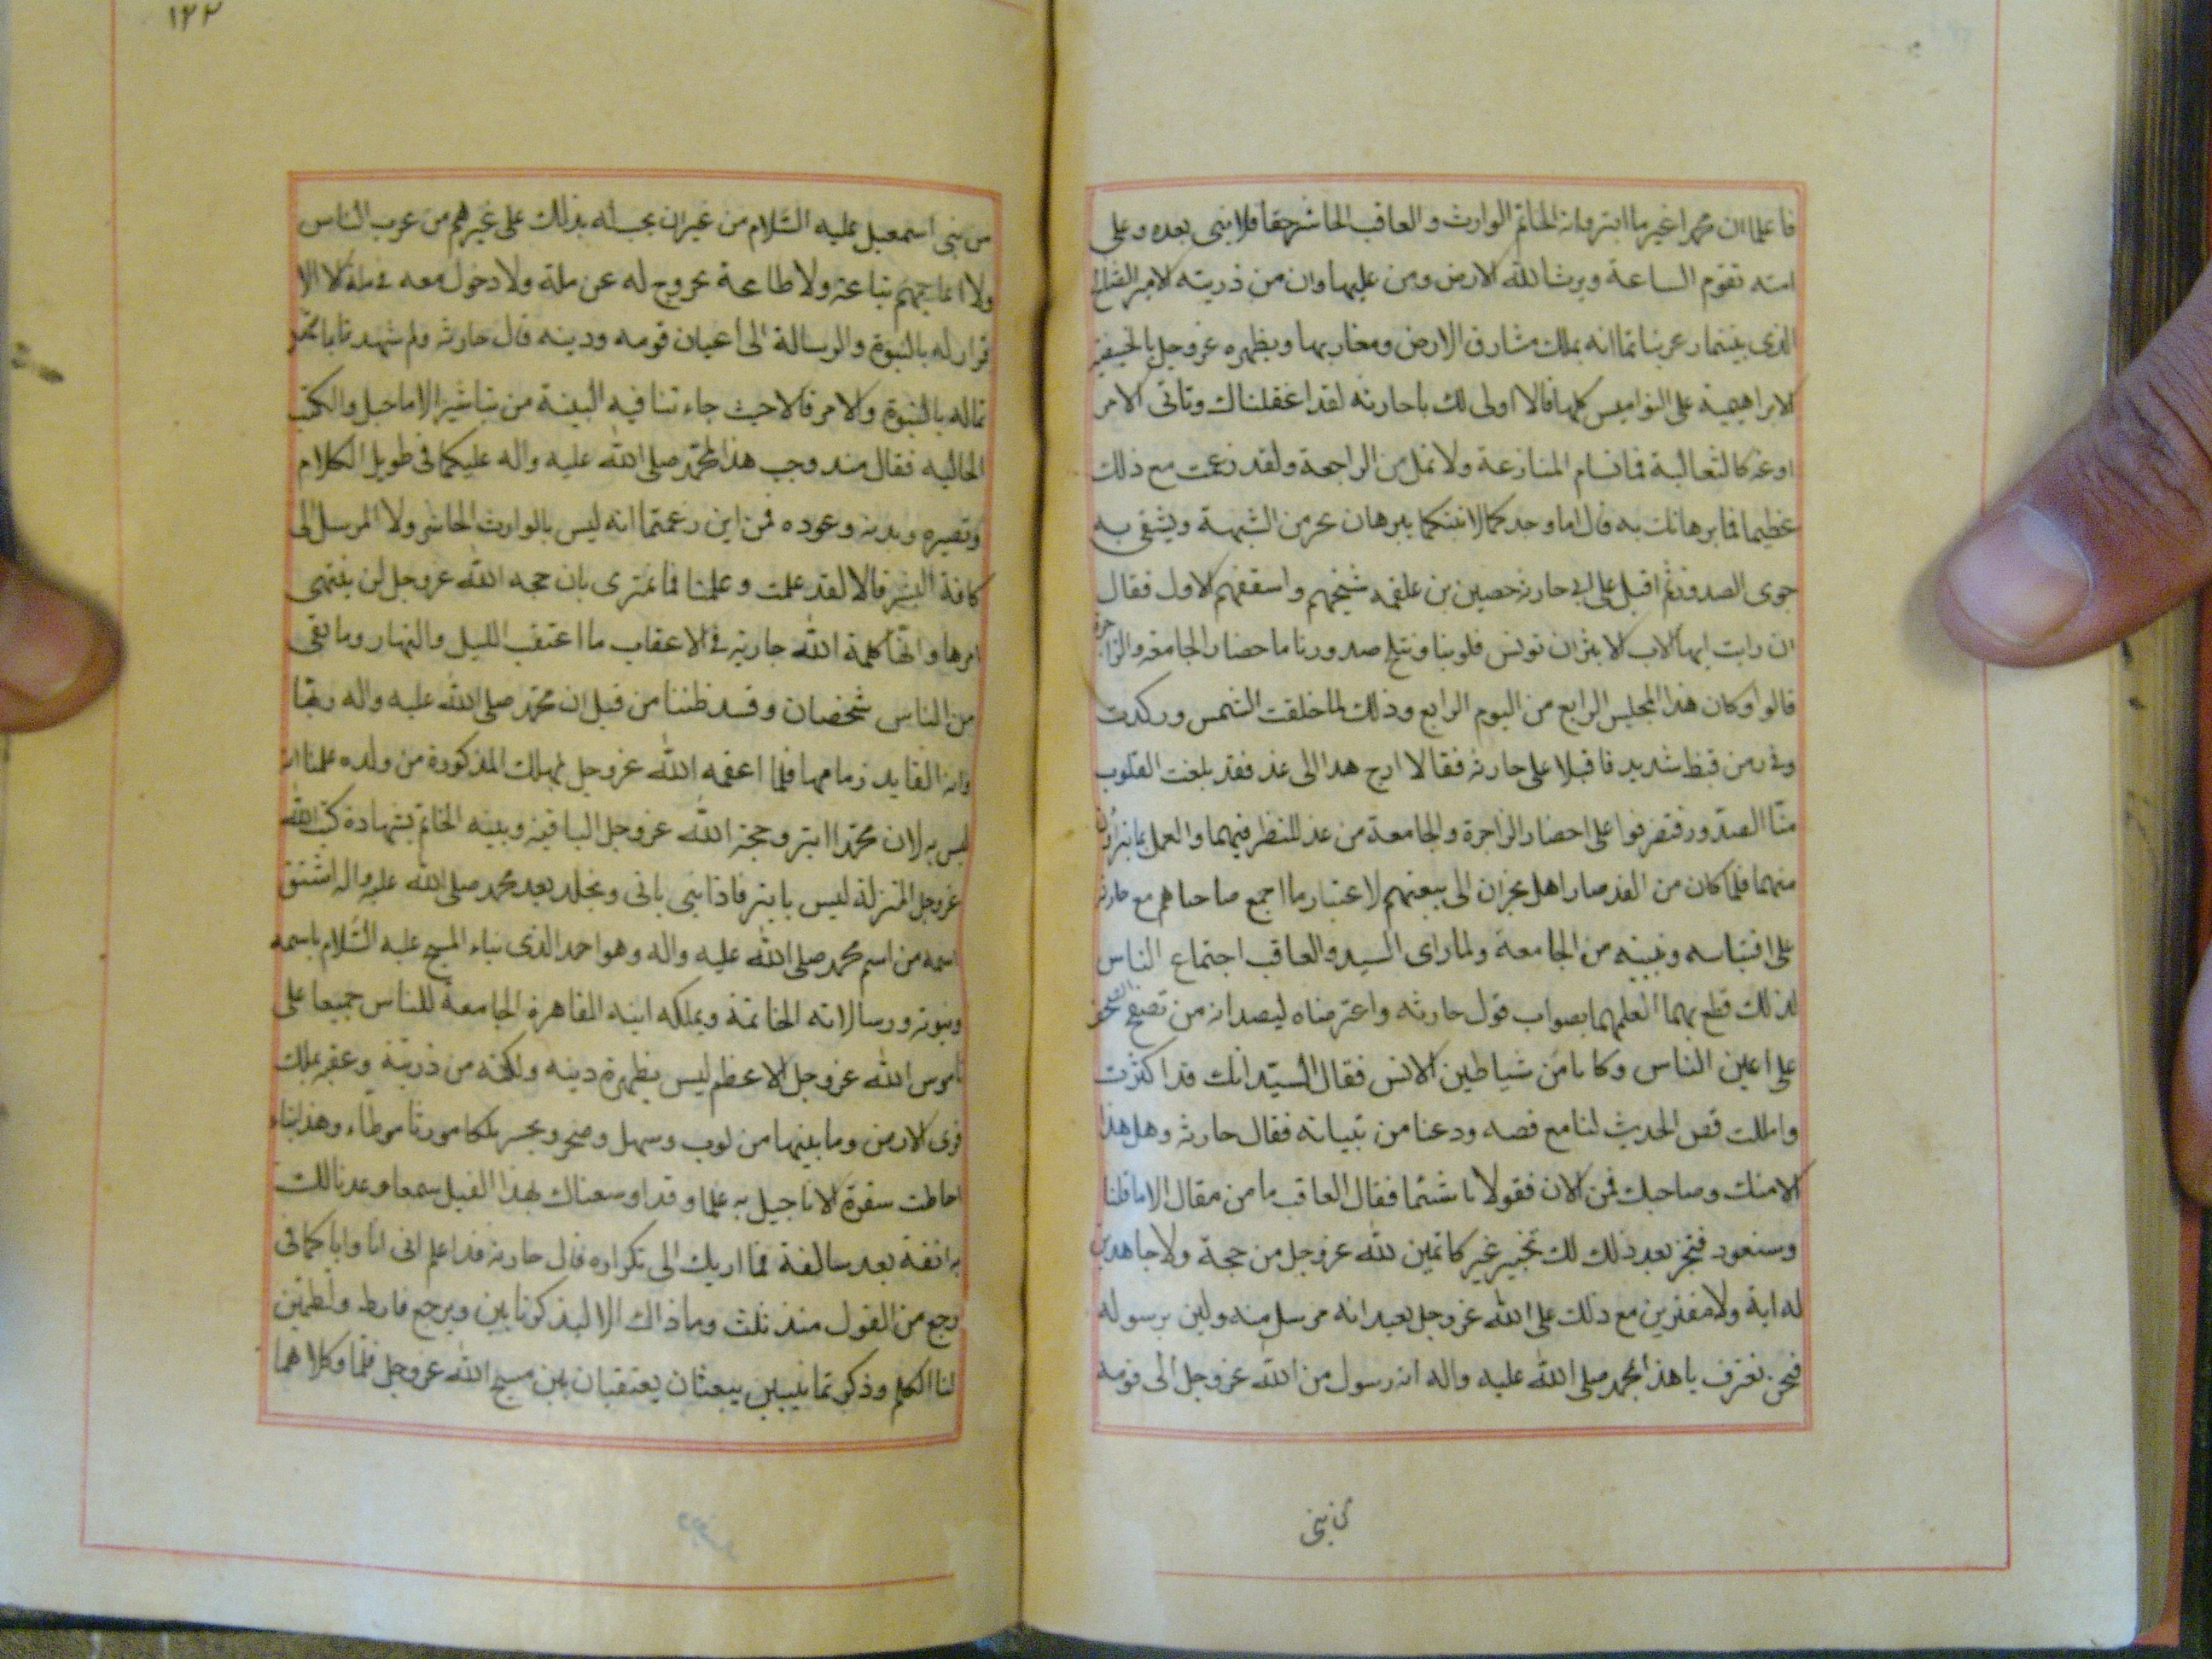 فاعلما ان محمدا غير ما ابتر وانه الخاتم الوارث والعاقب الحاشر حقا فلا نبى بعده وعلى
امته تقوم الساعة ويرث الله الارض ومن عليها وان من ذريته الامير الصالح
الذى بينتما وعرفتما انه يملك مشارق الارض ومغاربها ويظهره عز وجل بالحنيفية
الابراهيمية على النواميس كلها قالا اولى لك يا حارثه لقد اغفلناك وتاتى الا
كالثعالبة فما تسام المنازعة ولا تمل من المراجعة ولقد زعمت مع ذلك
عظيما فما برهانك به قال اما وجدكما لانبئنكما ببرهان يجر من الشبهة ويشفى به
جوى الصدور ثم اقبل على ابى حارثه حصين بن علقمه شيخهم واسقفهم الاول فقال
ان رايت ايها الاب الاثير ان تونس قلوبنا وتثلج صدورنا باحضار الجامعة والزاجرة
قالوا وكان هذا المجلس الرابع من اليوم الرابع وذلك لما حلقت الشمس وركدت
وفى زمن قيظ شديد فاقبلا على حارثه فقالا ارج هذا الى غد فقد بلغت القلوب
منا الصدور فتفرقوا على احضار الزاجرة والجامعة من غد للنظر فيهما والعمل بما
منهما فلما كان من الغد صار اهل نجران الى بيعتهم لاعتبار ما اجمع صاحباهم مع حارثه
على اقتباسه وتبينه من الجامعة ولما راى السيد والعاقب اجتماع الناس
لذلك قطع بهما لعلمهما بصواب قول حارثه واعترضاه ليصدانه من تصفح الصحف
على اعين الناس وكانا من شياطين الانس فقال السيد انك قد اكثرت
واملت قص الحديث لنا مع قصه ودعنا من تبيانه فقال حارثه وهل هذا
الا منك وصاحبك فمن الان فقولا ما شئتما فقال العاقب ما من مقال الا قلنا
وسنعود فنخبر بعد ذلك لك تخبير غير كاتمين لله عز وجل من حجة ولا جاحدين
له اية ولا مفترين مع ذلك على الله عز وجل لعبد انه مرسل منه وليس برسوله
فنحن نعترف يا هذا بمحمد صلى الله عليه واله انه رسول من الله عز وجل الى قومه
من بنى
١٢٢
من بنى اسمعيل عليه السلام من غير ان يجب له بذلك على غيرهم من عرب الناس
ولا اعاجمهم تباعة ولا طاعة بخروج له عن ملة ولا دخول معه فى ملة الا الا
قرار له بالنبوة والرسالة الى اعيان قومه ودينه قال حارثه وبم شهدتما
له بالنبوة والامر قالا حيث جاءتنا فيه البينة من تباشير الاناجيل والكتب
الخاليه فقال منذ وجب هذا لمحمد صلى الله عليه واله عليكما فى طويل الكلام
وقصيره وبدئه وعوده فمن اين زعمتما انه ليس بالوارث الحاشر ولا المرسل الى
كافة البشر قالا لقد علمت وعلمنا فما نمترى بان حجه الله عز وجل لن ينتهى
امرها وانها كلمة الله جارية فى الاعقاب ما اعتقب الليل والنهار وما بقى
من الناس شخصان وقد ظننا من قبل ان محمد صلى الله عليه واله ربها
وانه القايد بزمامها فلما اعقمه الله عز وجل بمهلك المذكورة من ولده علمنا انه
ليس به لان محمدا ابتر وحجة الله عز وجل الباقية ونبيه الخاتم بشهادة كتب الله
عز وجل المنزلة ليس بابتر فاذا نبى ياتى ويخلد بعد محمد صلى الله عليه واله اشتق
اسمه من اسم محمد صلى الله عليه واله وهو احمد الذى نباء المسيح عليه السلام باسمه
ونبوته ورسالاته الخاتمة ويملكه ابنه القاهرة الجامعة للناس جميعا على
ناموس الله عز وجل الاعظم ليس بظهرة دينه ولكنه من ذريته وعقبه يملك
قرى الارض وما بينهما من لوب وسهل وصخر وبحر ملكا مورثا موطاء وهذا نباء
احاطت سفرة الاناجيل به علما وقد اوسعناك بهذا القيل سمعا وعدنا لك
به انفة بعد سالفة فما اربك الى تكراره قال حارثه قد اعلم انى وايا كما فى
رجع من القول منذ ثلث وما ذاك الا ليذكر ناس ويرجع فارط وتطمئن
لنا الكلم وذكرتما نبيين يبعثان يعتقبان بين مسيح الله عز وجل قلتما وكلاهما